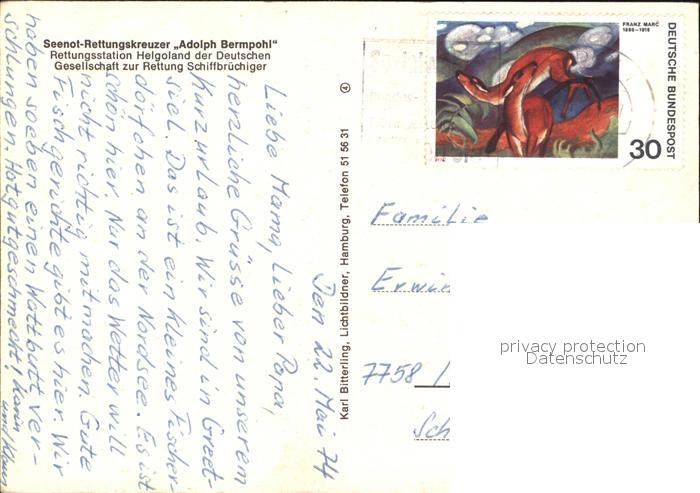 Seenot-Rettungskreuzer „Adolph Bermpohl"
Rettungsstation Helgoland der Deutschen
Gesellschaft zur Rettung Schiffbrüchiger
Den 22. Mai 74
Liebe Mama, Lieber Papa,
herzliche Grüsse von unserem
Kurzurlaub. Wir sind in Greet-
siel. Das ist ein kleines Fischer-
dörfchen an der Nordsee. Es ist
schön hier. Nur das Wetter will
nicht richtig mitmachen. Gute
Fischgerichte gibt es hier. Wir
haben soeben einen Wattbutt ver-
schlungen. Hat gut geschmeckt! Karin
und Klaus
Karl Bitterling, Lichtbildner, Hamburg, Telefon 51 56 31
4
FRANZ MARC
1880–1916
DEUTSCHE BUNDESPOST
30
Familie
Erwin
7758
Sch
privacy protection
Datenschutz